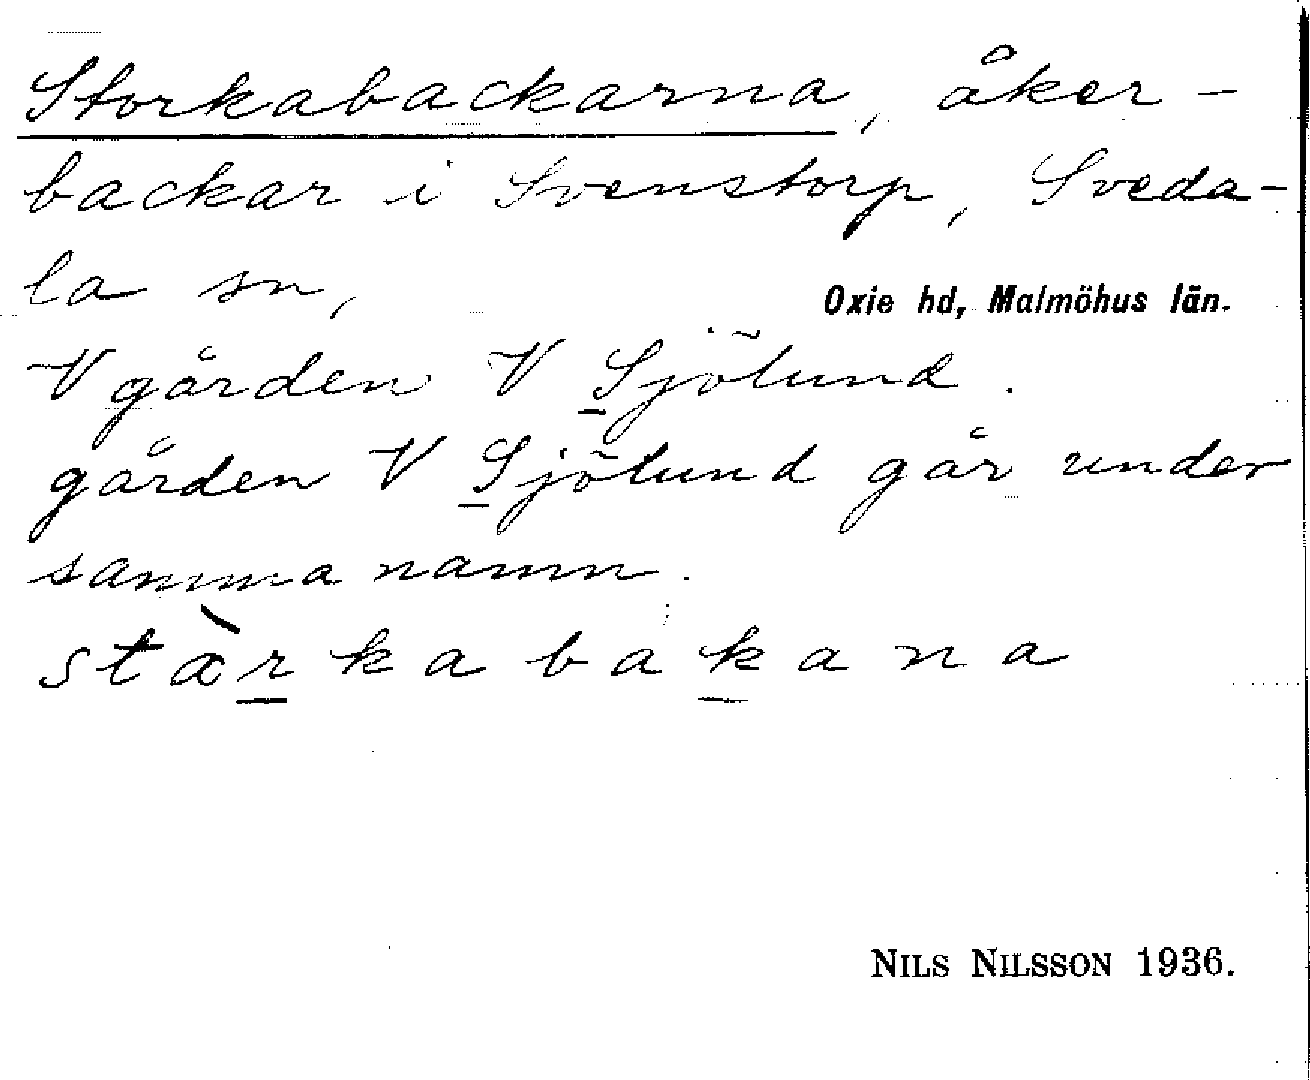 Storkabackarna, åker-
backar i Svenstorp, Sveda-
la sn, Oxie hd, Malmöhus län.
V gården V Sjölund.
gården V Sjölund går under
samma namn.
stàrkabakana
NILS NILSSON 1936.